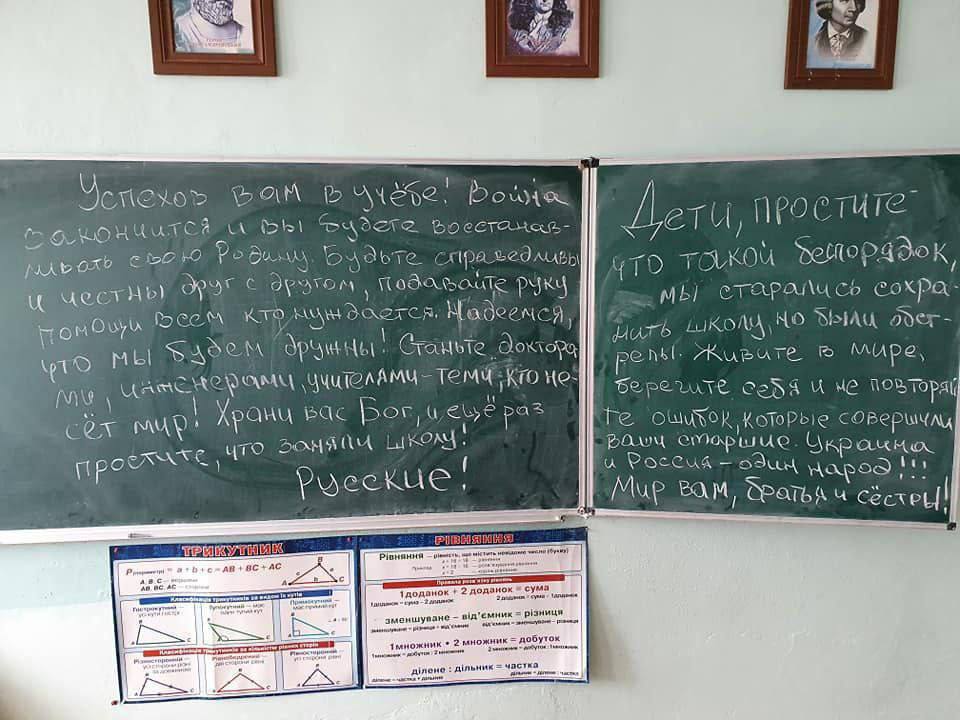 Успехов вам в учёбе! Война
закончится и вы будете восстанав-
ливать свою Родину. Будьте справедливы
и честны друг с другом, подавайте руку
помощи всем кто нуждается. Надеемся,
что мы будем дружны! Станьте доктора-
ми, инженерами, учителями - теми, кто не-
сёт мир! Храни вас Бог, и ещё раз
простите, что заняли школу!
Русские!
Дети, простите
что такой беспорядок,
мы старались сохра-
нить школу, но были обст-
релы. Живите в мире,
берегите себя и не повторяй-
те ошибок, которые совершили
ваши старшие. Украина
и Россия - один народ!!!
Мир вам, братья и сёстры!
ТРИКУТНИК
P(периметр) = a + b + c = AB + BC + AC
A, B, C — вершини
AB, BC, AC — сторони
B
a
c
b
A
C
Класифікація трикутників за видом їх кутів
Гострокутний —
усі кути гострі
Тупокутний — має
один тупий кут
Прямокутний —
має прямий кут
Класифікація трикутників за кількістю рівних сторін
Різносторонній —
усі сторони різні
за довжиною
Рівнобедрений —
дві сторони рівні
Рівносторонній —
усі сторони рівні
РІВНЯННЯ
Рівняння — рівність, що містить невідоме число (букву)
Правила розв'язку рівнянь
1доданок + 2 доданок = сума
1доданок = сума - 2 доданок
2 доданок = сума - 1доданок
зменшуване – від'ємник = різниця
зменшуване = різниця + від'ємник
від'ємник = зменшуване – різниця
1множник • 2 множник = добуток
1множник = добуток : 2 множник
2 множник = добуток : 1множник
ділене : дільник = частка
ділене = частка • дільник
дільник = ділене : частка